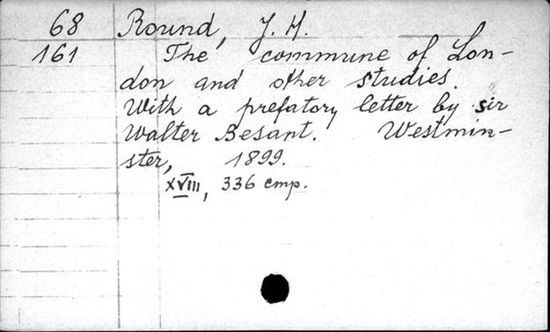 68 Round, J. H.
161 The commune of Lon-
don and other studies.
With a prefatory letter by sir
Walter Besant. Westmin-
ster, 1899.
XVIII, 336 стр.